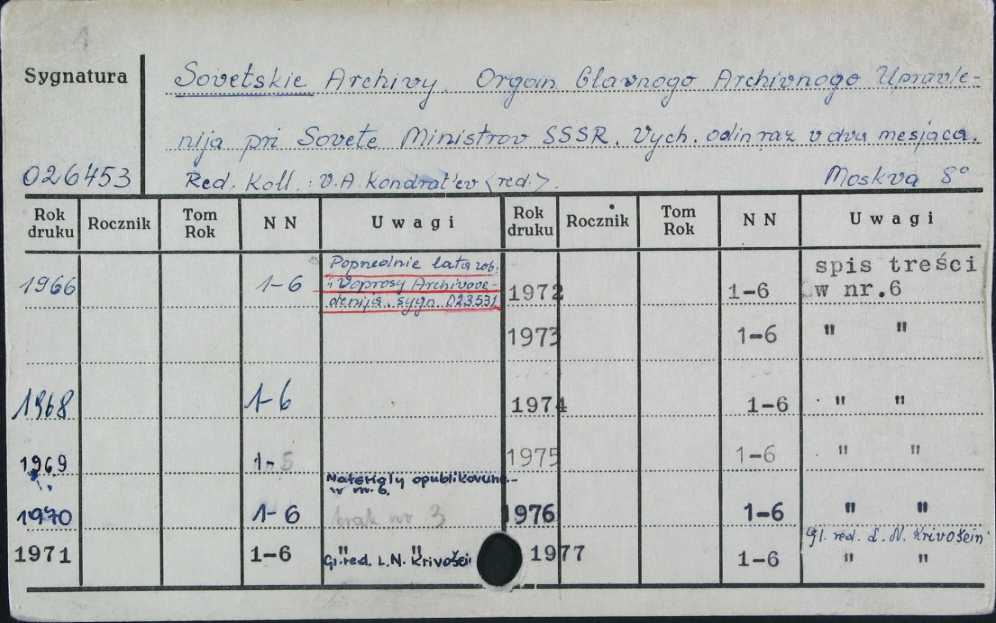 Sygnatura
Sovetskie Archivy. Organ Glavnogo Archivnogo Upravle-
nija pri Sovete Ministrov SSSR. Vych. odin raz v dva mesjaca.
026453 Red. Koll.: V.A. Kondrat'ev <red.>. Moskva 8°
Rok druku Rocznik Tom Rok N N Uwagi Rok druku Rocznik Tom Rok N N Uwagi
1966 1-6 Poprzednie lata zob.
"Voprosy Archivove-
denija. sygn. 023531
1972 1-6 spis treści
w nr.6
1973 1-6 " "
1968 1-6
1974 1-6 " "
1969 1-5
1975 1-6 " "
Materiały opublikovune-
w nr. 6.
1970 1-6 brak nr 3
1976 1-6 " "
1971 1-6 " "
Gl. red. L.N. Krivošei
Gl. red. L. N. Krivošein
1977 1-6 " "